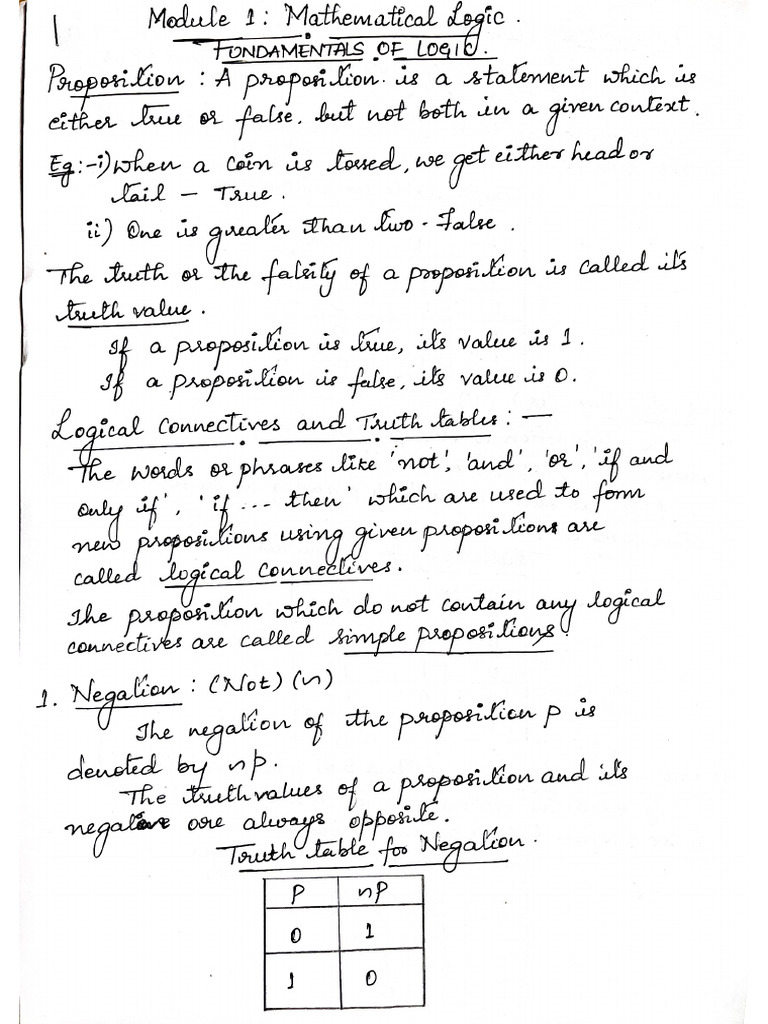 1
Module 1: Mathematical Logic.
FUNDAMENTALS OF LOGIC.
Proposition : A proposition is a statement which is
either true or false, but not both in a given context.
Eg:-i) When a coin is tossed, we get either head or
tail – True.
ii) One is greater than two - False.
The truth or the falsity of a proposition is called its
truth value.
If a proposition is true, its value is 1.
If a proposition is false, its value is 0.
Logical Connectives and Truth tables : —
The words or phrases like 'not', 'and', 'or', 'if and
only if', 'if ... then' which are used to form
new propositions using given propositions are
called logical connectives.
The proposition which do not contain any logical
connectives are called simple propositions.
1. Negation : (Not) (~)
The negation of the proposition p is
denoted by ~p.
The truth values of a proposition and its
negative are always opposite.
Truth table for Negation.
P ~P
0 1
1 0